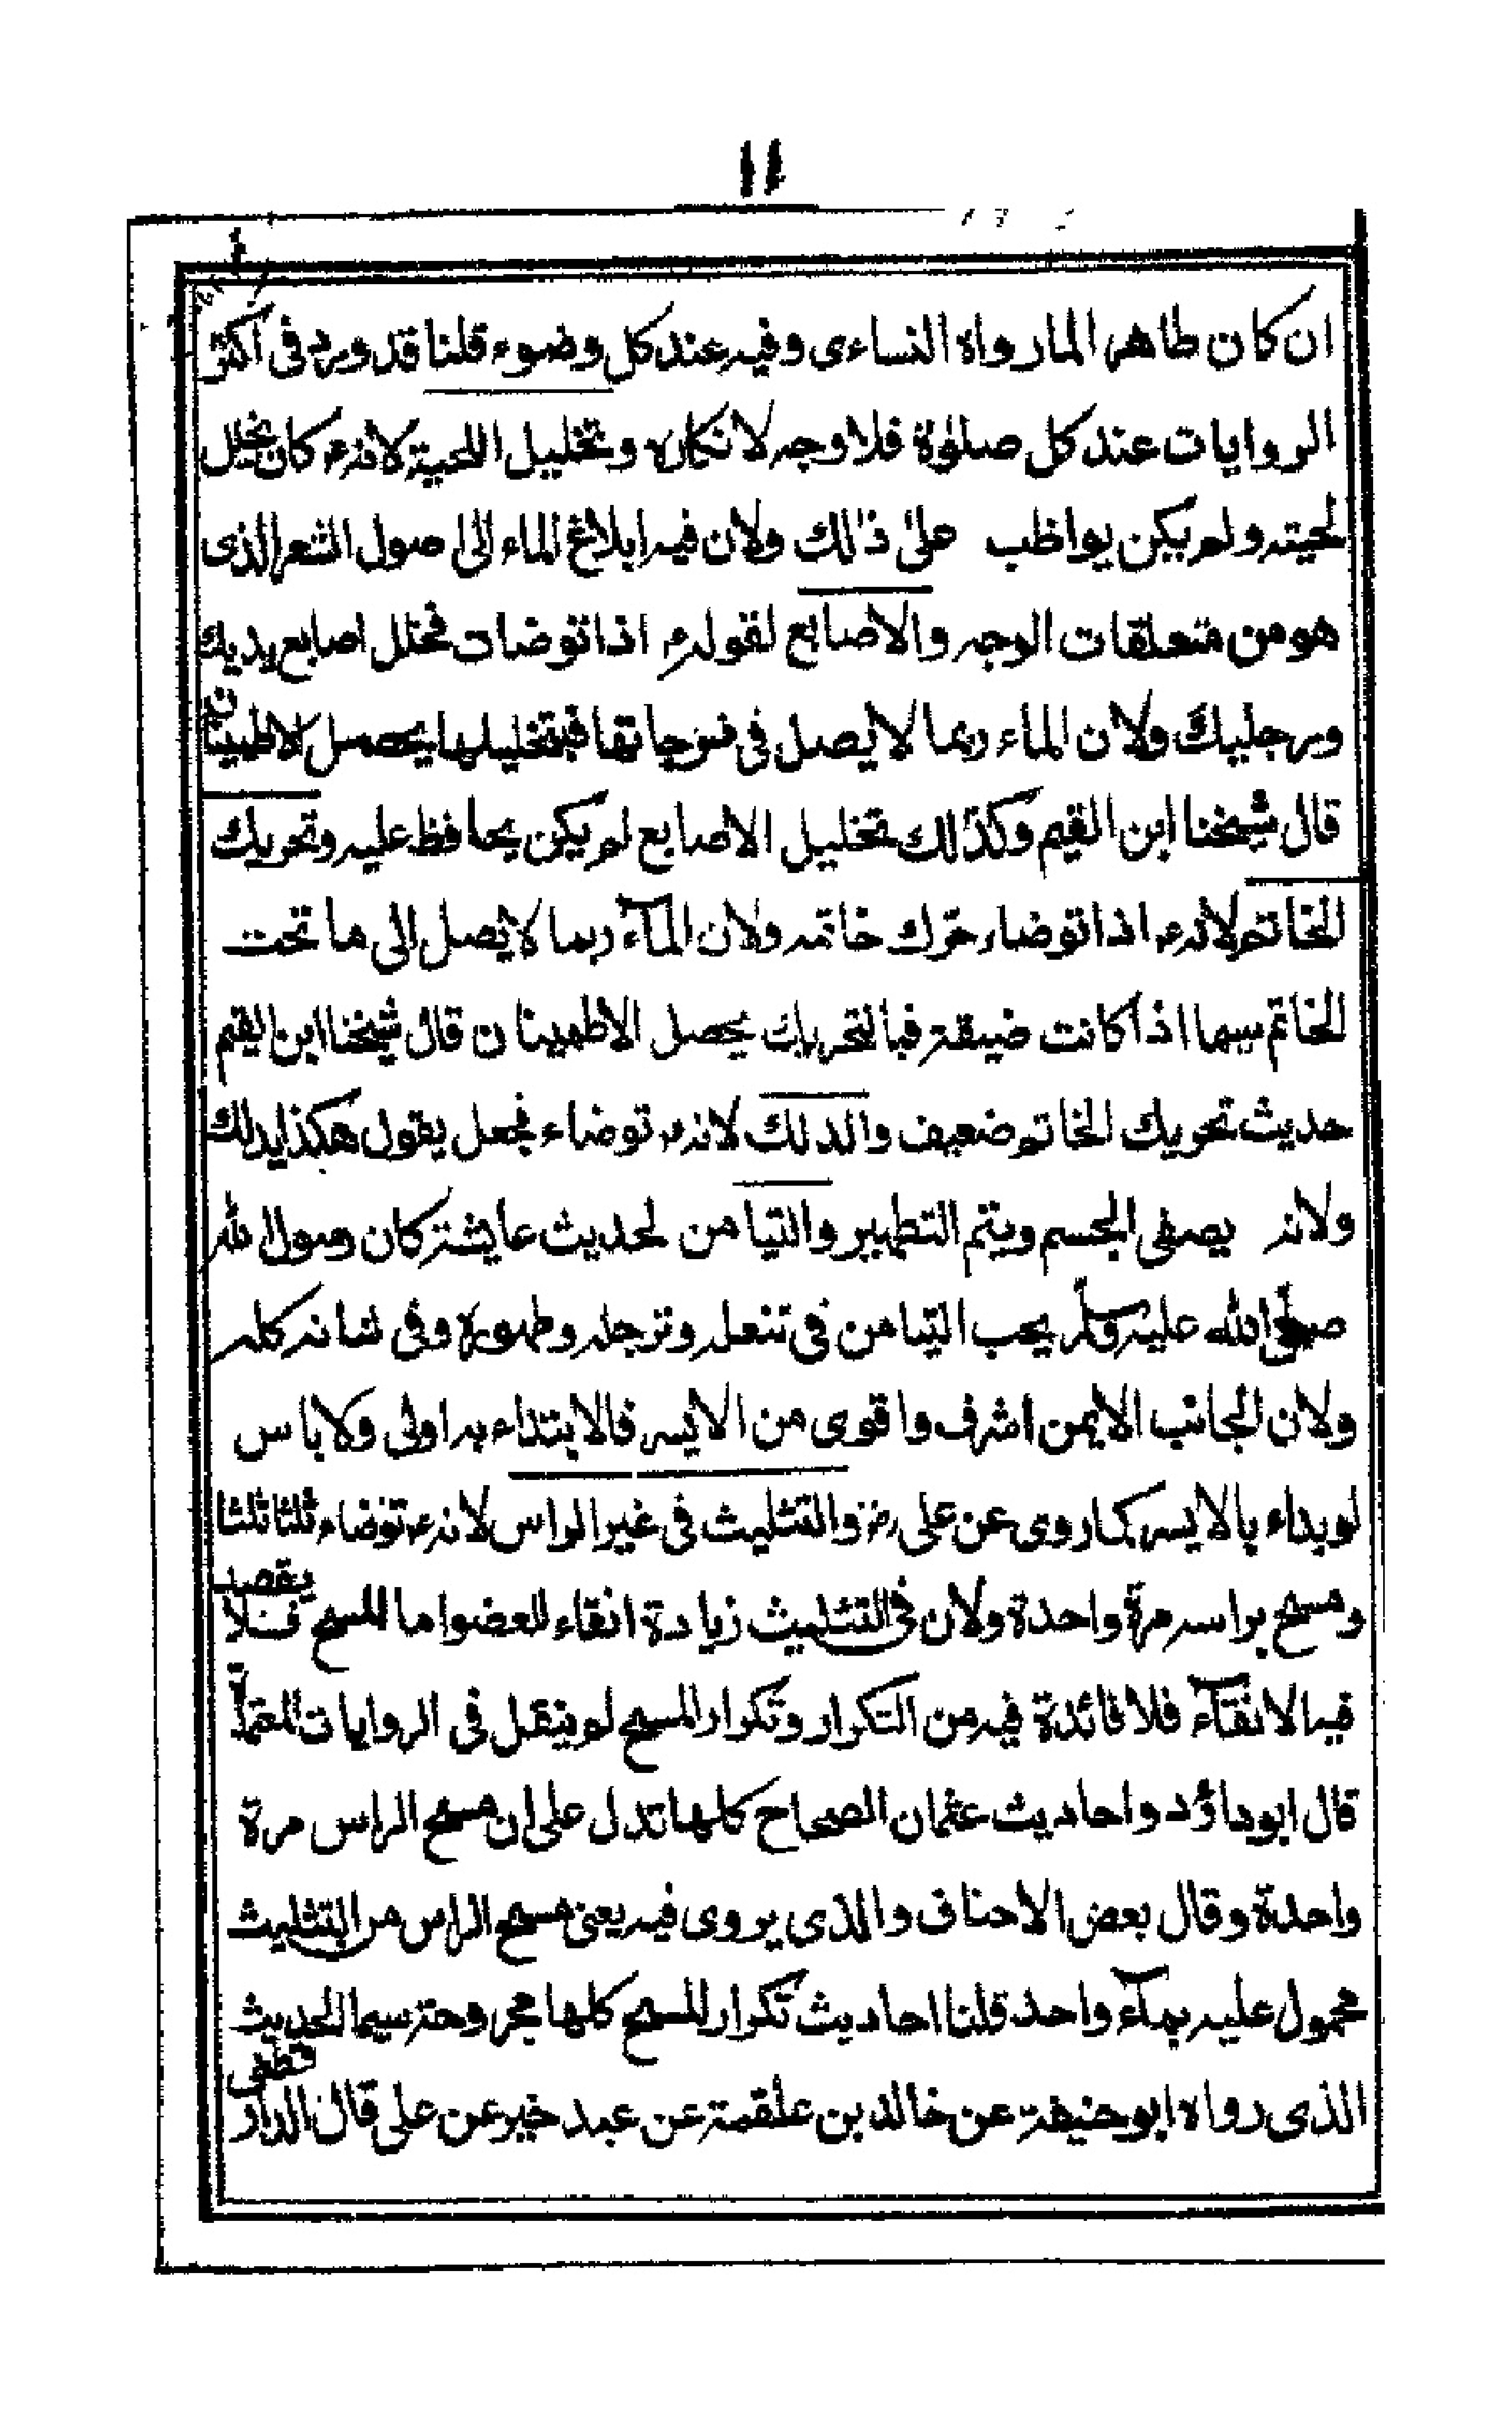 ١١
ان كان طاهرا لما رواه النساءى وفيه عند كل وضوء قلنا قد ورد فى اكثر
الروايات عند كل صلوٰة فلا وجه لانكاره وتخليل اللحية لانهؑ كان يخلل
لحيته ولم يكن يواظب علىٰ ذٰلك ولان فيه ابلاغ الماء الى اصول الشعر الذى
هو من متعلقات الوجه والاصابع لقولهؑ اذا توضات فخلل اصابع يديك
ورجليك ولان الماء ربما لا يصل فى فرجاتها فبتخليلها يحصل الاطمينان
قال شيخنا ابن القيم وكذٰلك تخليل الاصابع لم يكن يحافظ عليه وتحريك
الخاتم لانهؑ اذا توضاء حرّك خاتمه ولان المآء ربما لا يصل الى ما تحت
الخاتم سيما اذا كانت ضيقة فبالتحريك يحصل الاطمينان قال شيخنا ابن القيم
حديث تحريك الخاتم ضعيف والدلك لانهؑ توضاء فجعل يقول هكذا يدلك
ولانه يصفى الجسم ويتم التطهير والتيامن لحديث عايشة كان رسول الله
صلى الله عليه وسلم يحب التيامن فى تنعله وترجله وطهوره وفى شانه كله
ولان الجانب الايمن اشرف واقوى من الايسر فالابتداء به اولى ولا باس
لو بداء بالايسر كما روى عن علىؓ والتثليث فى غير الراس لانهؑ توضاء ثلثا ثلثا
ومسح براسه مرة واحدة ولان فى التثليث زيادة انقاء للعضو اما المسح فلا يقصد
فيه الانقآء فلا فائدة فيه من التكرار وتكرار المسح لم ينقل فى الروايات
قال ابوداؤد واحاديث عثمان الصحاح كلها تدل على ان مسح الراس مرة
واحدة وقال بعض الاحناف والذى يروى فيه يعنى مسح الراس من التثليث
محمول عليه بمآء واحد قلنا احاديث تكرار المسح كلها مجروحة سيما الحديث
الذى رواه ابوحنيفة عن خالد بن علقمة عن عبد خير عن على قال الدارقطنى